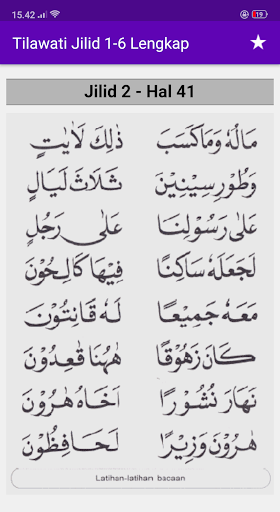 15.42
19
Tilawati Jilid 1-6 Lengkap
Jilid 2 - Hal 41
مَالُهٗ وَمَاكَسَبَ ذٰلِكَ لَاٰيٰتٍ
وَطُوْرِسِيْنِيْنَ ثَلَاثَ لَيَالٍ
عَلٰى رَسُوْلِنَا عَلٰى رَجُلٍ
لَجَعَلَهٗ سَاكِنًا فِيْهَا كَالِحُوْنَ
مَعَهٗ جَمِيْعًا لَهٗ قَانِتُوْنَ
كَانَ زَهُوْقًا هٰهُنَا قٰعِدُوْنَ
نَهَارَ نُشُوْرًا اَخَاهُ هٰرُوْنَ
هٰرُوْنَ وَزِيْرًا لَحَافِظُوْنَ
Latihan-latihan bacaan